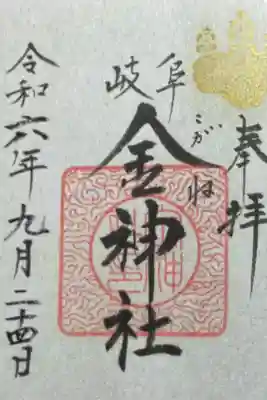 奉拝
岐阜
金神社
こがね
令和六年九月二十四日